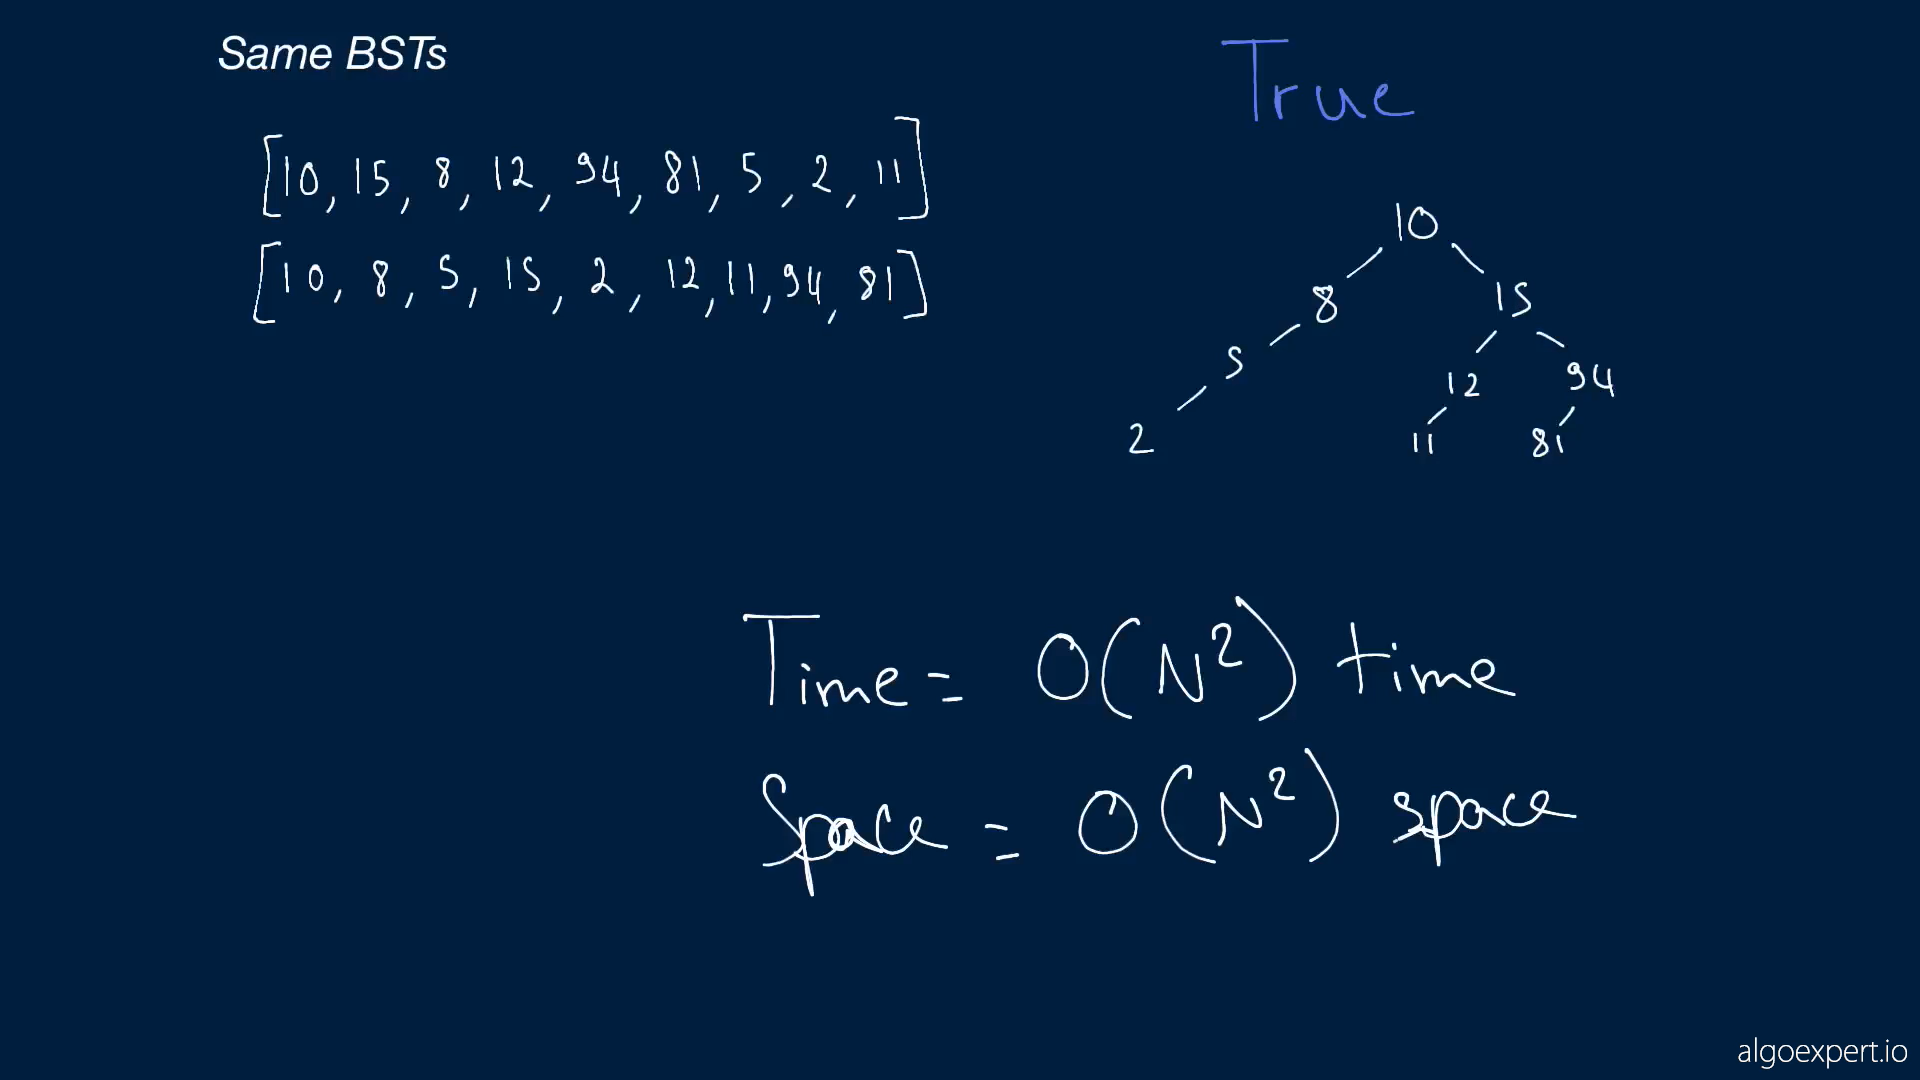 Same BSTs
True
[10, 15, 8, 12, 94, 81, 5, 2, 11]
[10, 8, 5, 15, 2, 12, 11, 94, 81]
10
8 15
5 12 94
2 11 81
Time = O(N²) time
Space = O(N²) space
algoexpert.io